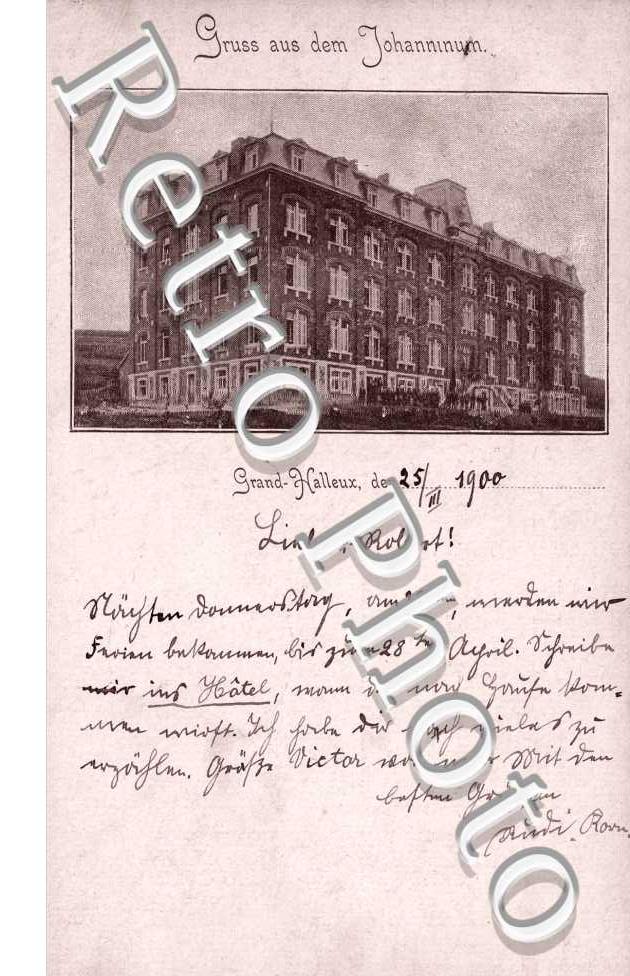 Gruss aus dem Johanninum.
Grand-Halleux, de 25/III 1900
Lieber Robert!
Nächsten Donnerstag, werden wir
Ferien bekommen, bis zum 28ten April. Schreibe
mir ins Hôtel, wann du nach Hause kom-
men wirst. Ich habe dir noch vieles zu
erzählen. Grüße Victor von mir Mit den
besten Grüßen
Rudi
Retro Photo